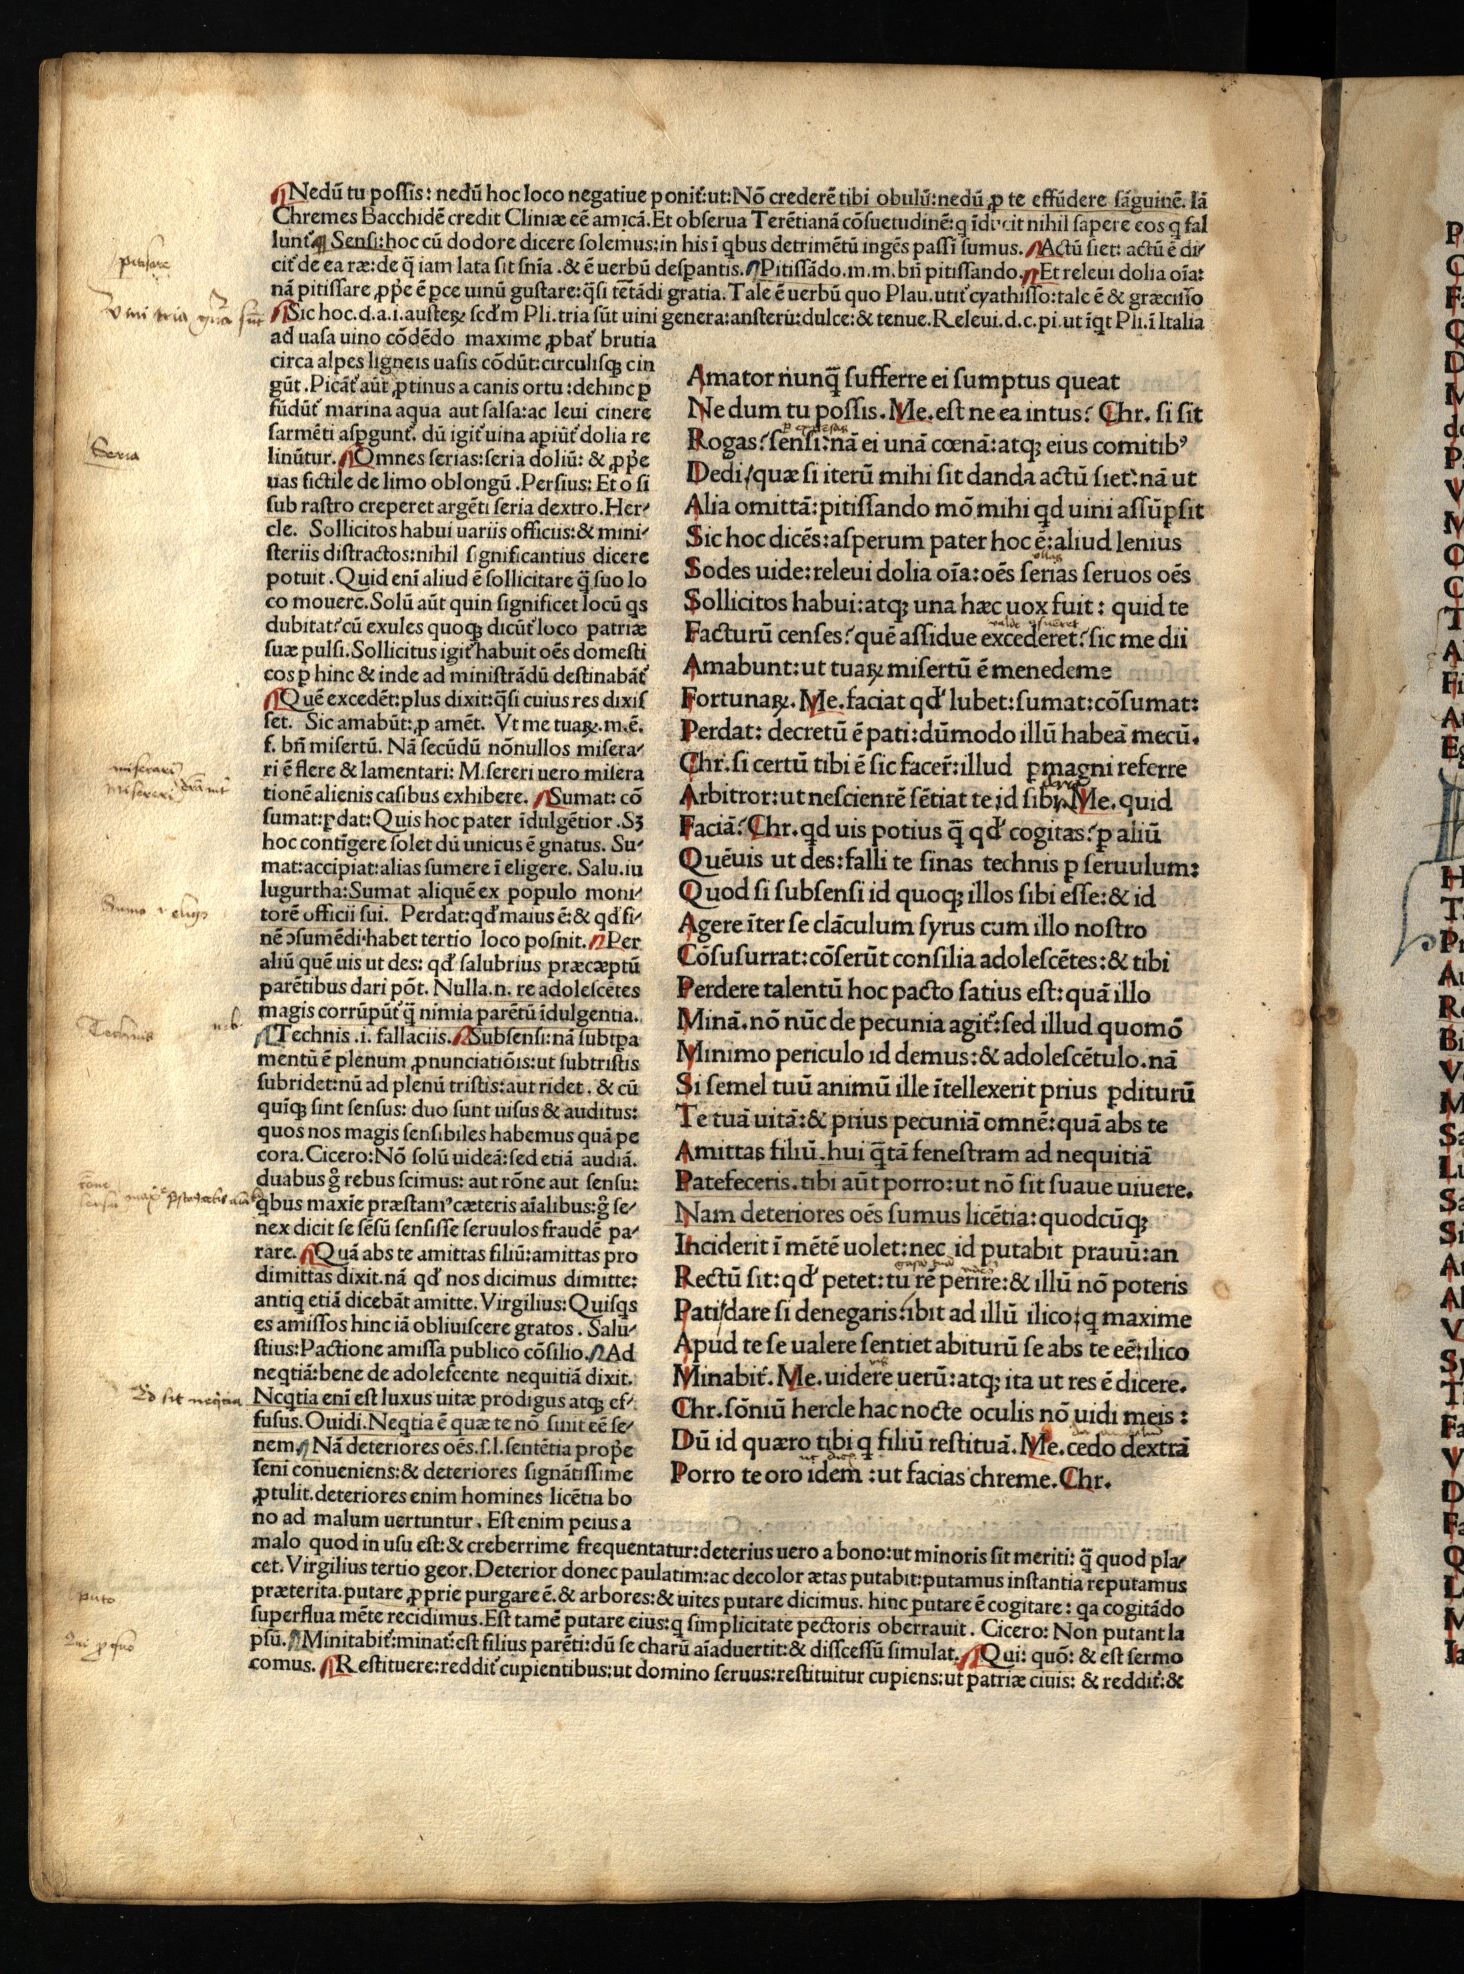 ¶Nedū tu poſſis: nedū hoc loco negatiue poniť:ut:Nō crederē tibi obulū:nedū ꝓ te effūdere ſāguinē. Iā
Chremes Bacchidē credit Cliniæ eē amicā.Et obſerua Terētianā cōſuetudinē:q īducit nihil ſapere eos q fal
lunť¶ Senſi:hoc cū dodore dicere ſolemus:in his ī qbus detrimētū ingēs paſſi ſumus. ¶Actū ſiet: actū ē di⸗
ciť de ea ræ:de q̄ iam lata ſit ſnīa .& ē uerbū deſꝑantis.¶Pitiſſādo.m.m.bñ pitiſſando.¶Et releui dolia oīa:
nā pitiſſare ꝓpe ē ꝑce uinū guſtare:q̄ſi tētādi gratia.Tale ē uerbū quo Plau.utiť cyathiſſo:tale ē & græciſſo
¶Sic hoc.d.a.i.auſteꝝ ſcďm Pli.tria ſūt uini genera:anſterū:dulce:& tenue.Releui.d.c.pi.ut īqt Pli.ī Italia
ad uaſa uino cōdēdo maxime ꝓbať brutia
circa alpes ligneis uaſis cōdūt:circuliſqꝫ cin
gūt.Picāť aūt ꝓtinus a canis ortu:dehinc ꝑ
fūdūť marina aqua aut ſalſa:ac leui cinere
ſarmēti aſꝑgunť. dū igiť uina apiūť dolia re
linūtur.¶Omnes ſerias:ſeria doliū: & ꝓpe
uas fictile de limo oblongū.Perſius:Et o ſi
ſub raſtro creperet argēti ſeria dextro.Her⸗
cle. Sollicitos habui uariis officiis:& mini⸗
ſteriis diſtractos:nihil ſignificantius dicere
potuit.Quid enī aliud ē ſollicitare q̄ ſuo lo
co mouere.Solū aūt quin ſignificet locū qs
dubitat?cū exules quoqꝫ dicūť loco patriæ
ſuæ pulſi.Sollicitus igiť habuit oēs domeſti
cos ꝑ hinc & inde ad miniſtrādū deſtinabāť
¶Quē excedēt:plus dixit:q̄ſi cuius res dixiſ
ſet. Sic amabūt:ꝓ amēt. Vt me tuaꝝ.m.ē.
f. bñ miſertū. Nā ſecūdū nōnullos miſera⸗
ri ē flere & lamentari: Miſereri uero miſera
tionē alienis caſibus exhibere. ¶Sumat: cō
ſumat:ꝑdat:Quis hoc pater īdulgētior.Sꝫ
hoc contīgere ſolet dū unicus ē gnatus. Su⸗
mat:accipiat:alias ſumere ī eligere. Salu.iu
lugurtha:Sumat aliquē ex populo moni⸗
torē officii ſui. Perdat:qď maius ē:& qď fi⸗
nē ɔſumēdi habet tertio loco poſnit.¶Per
aliū quē uis ut des: qď ſalubrius præcæptū
parētibus dari pōt. Nulla.n. re adoleſcētes
magis corrūpūť q̄ nimia parētū īdulgentia.
¶Technis .i. fallaciis.¶Subſenſi:nā ſubtꝑa
mentū ē plenum ꝓnunciatiōis:ut ſubtriſtis
ſubridet:nū ad plenū triſtis:aut ridet. & cū
quīqꝫ ſint ſenſus: duo ſunt uiſus & auditus:
quos nos magis ſenſibiles habemus quā pe
cora.Cicero:Nō ſolū uideā:ſed etiā audiā.
duabus g̊ rebus ſcimus: aut rōne aut ſenſu:
qbus maxīe præſtamꝰ cæteris aīalibus:g̊ ſe⸗
nex dicit ſe ſēſū ſenſiſſe ſeruulos fraudē pa⸗
rare. ¶Quā abs te amittas filiū:amittas pro
dimittas dixit.nā qď nos dicimus dimitte:
antiq etiā dicebāt amitte.Virgilius:Quiſqs
es amiſſos hinc iā obliuiſcere gratos. Salu⸗
ſtius:Pactione amiſſa publico cōſilio.¶Ad
neqtiā:bene de adoleſcente nequitiā dixit.
Neqtia enī eſt luxus uitæ prodigus atqꝫ ef⸗
fuſus.Ouidi.Neqtia ē quæ te nō ſinit eē ſe⸗
nem.¶Nā deteriores oēs.ſ.l.ſentētia proꝑe
ſeni conueniens:& deteriores ſignātiſſime
ꝓtulit.deteriores enim homines licētia bo
no ad malum uertuntur. Eſt enim peius a
malo quod in uſu eſt:& creberrime frequentatur:deterius uero a bono:ut minoris ſit meriti: q̄ quod pla⸗
cet. Virgilius tertio geor.Deterior donec paulatim:ac decolor ætas putabit:putamus inſtantia reputamus
præterita.putare ꝓprie purgare ē.& arbores:& uites putare dicimus. hinc putare ē cogitare: qa cogitādo
ſuperflua mēte recidimus.Eſt tamē putare eius:q ſimplicitate pectoris oberrauit. Cicero: Non putant la
pſū.¶Minitabiť:minať:eſt filius parēti:dū ſe charū aīaduertit:& diſſceſſū ſimulat.¶Qui: quō: & eſt ſermo
comus. ¶Reſtituere:reddiť cupientibus:ut domino ſeruus:reſtituitur cupiens:ut patriæ ciuis: & reddiť:&
Amator nunq̄ ſufferre ei ſumptus queat
Ne dum tu poſſis. Me.eſt ne ea intus? Chr. ſi ſit
Rogas?ſenſi:nā ei unā cœnā:atqꝫ eius comitibꝰ
Dedi/quæ ſi iterū mihi ſit danda actū ſiet:nā ut
Alia omittā:pitiſſando mō mihi qd uini aſſūpſit
Sic hoc dicēs:aſperum pater hoc ē:aliud lenius
Sodes uide:releui dolia oīa:oēs ſerias ſeruos oēs
Sollicitos habui:atqꝫ una hæc uox fuit: quid te
Facturū cenſes?quē aſſidue excederet?ſic me dii
Amabunt:ut tuaꝝ miſertū ē menedeme
Fortunaꝝ. Me.faciat qď lubet:ſumat:cōſumat:
Perdat: decretū ē pati:dūmodo illū habeā mecū.
Chr.ſi certū tibi ē ſic facer̄:illud ꝑmagni referre
Arbitror:ut neſcientē ſētiat te id ſibi. Me.quid
Faciā? Chr.qd uis potius q̄ qď cogitas?ꝑ aliū
Quēuis ut des:falli te ſinas technis ꝑ ſeruulum:
Quod ſi ſubſenſi id quoqꝫ illos ſibi eſſe:& id
Agere īter ſe clāculum ſyrus cum illo noſtro
Cōſuſurrat:cōſerūt conſilia adoleſcētes:& tibi
Perdere talentū hoc pacto ſatius eſt:quā illo
Minā.nō nūc de pecunia agiť:ſed illud quomō
Minimo periculo id demus:& adoleſcētulo.nā
Si ſemel tuū animū ille ītellexerit prius ꝑditurū
Te tuā uitā:& prius pecuniā omnē:quā abs te
Amittas filiū.hui q̄tā feneſtram ad nequitiā
Patefeceris.tibi aūt porro:ut nō ſit ſuaue uiuere.
Nam deteriores oēs ſumus licētia:quodcūqꝫ
Inciderit ī mētē uolet:nec id putabit prauū:an
Rectū ſit:qď petet:tu rē perire:& illū nō poteris
Pati/dare ſi denegaris:ibit ad illū ilico:q maxime
Apud te ſe ualere ſentiet abiturū ſe abs te eē:ilico
Minabiť. Me.uidere uerū:atqꝫ ita ut res ē dicere.
Chr.ſōniū hercle hac nocte oculis nō uidi meis:
Dū id quæro tibi q filiū reſtituā. Me.cedo dextrā
Porro te oro idem:ut facias chreme.Chr.
pitiſare
Vini tria
Seria
miſerari
miſereri
Sumo
Technis
Qd ſit neqtia
puto